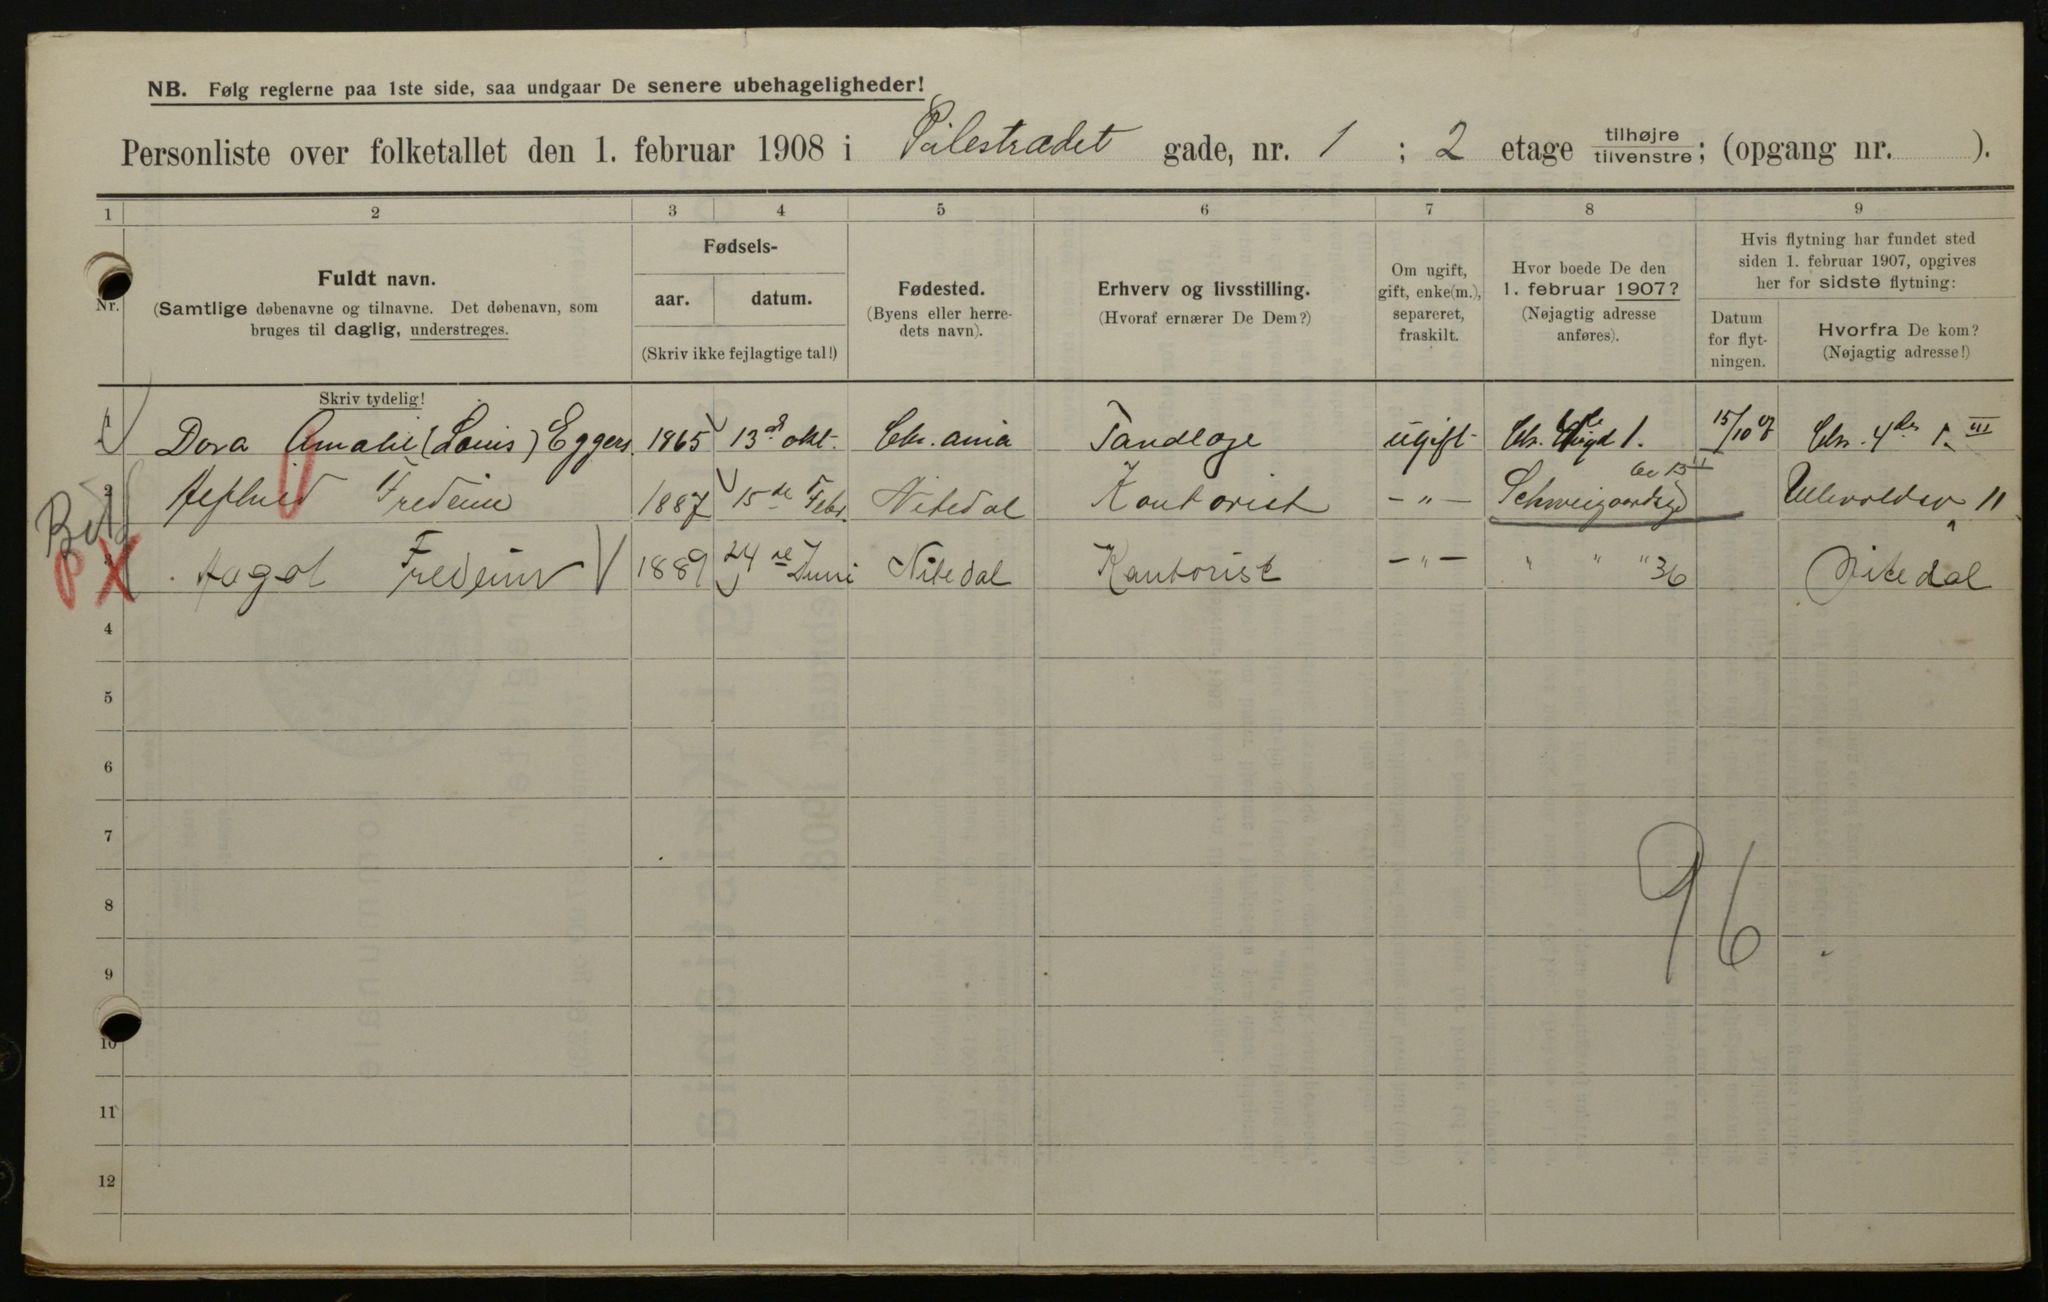 NB. Følg reglerne paa 1ste side, saa undgaar De senere ubehageligheder!
Personliste over folketallet den 1. februar 1908 i Pilestrædet gade, nr. 1 ; 2 etage tilhøjre tilvenstre; (opgang nr. ).
1 2 3 4 5 6 7 8 9
Nr.
Fuldt navn.
(Samtlige døbenavne og tilnavne. Det døbenavn, som
bruges til daglig, understreges.
Fødsels-
aar. datum.
(Skriv ikke fejlagtige tal!)
Fødested.
(Byens eller herre-
dets navn).
Erhverv og livsstilling.
(Hvoraf ernærer De Dem?)
Om ugift,
gift, enke(m.),
separeret,
fraskilt.
Hvor boede De den
1. februar 1907?
(Nøjagtig adresse
anføres).
Hvis flytning har fundet sted
siden 1. februar 1907, opgives
her for sidste flytning:
Datum
for flyt-
ningen.
Hvorfra De kom?
(Nøjagtig adresse!)
Skriv tydelig!
1 Dora Amalie (Louis) Eggers 1865 13de okt. Chr.ania Tandlæge ugift Chr. 1. 15/10 07 Chr. 4des 1 III
2 1887 15de Febr. Nitedal Kontorist - " - Schweigaardsgd 11
3 Aagot 1889 24re Juni Nitedal Kontorist - " - " " " 36 Nitedal
4
5
6
7
8
9
10
11
12
96